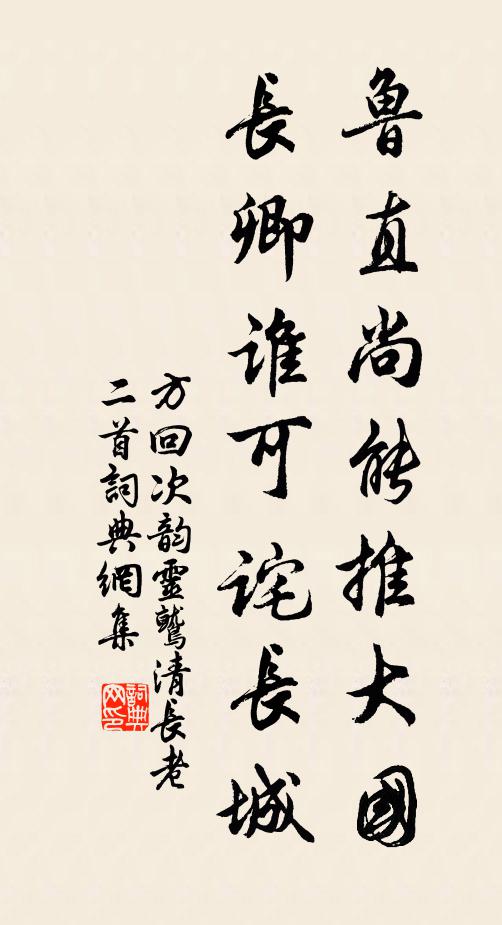 魯直尚能推大國
長卿誰可詫長城
方回次韵靈鷲清長老
二首詞典網集
詞典網印